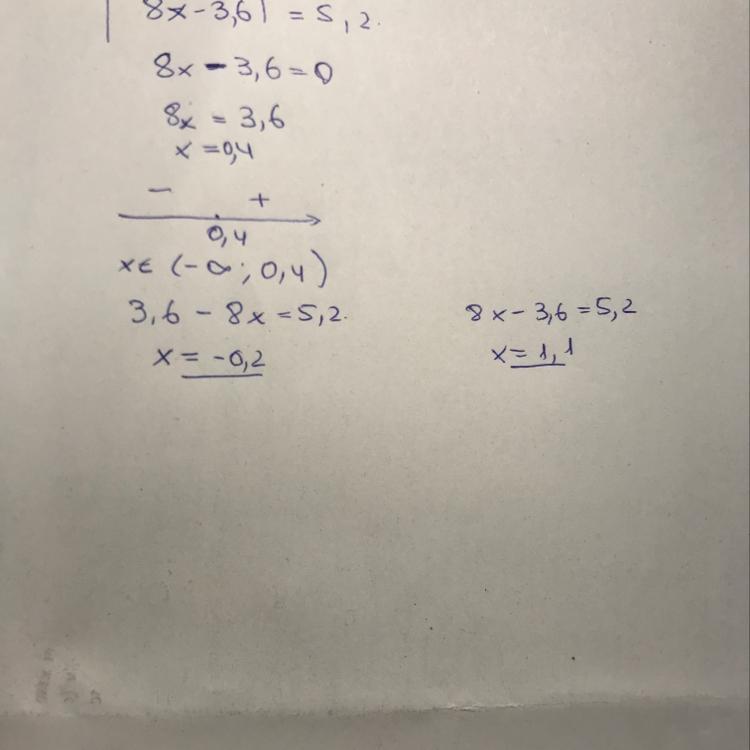 |8x-3,6| = 5,2.
8x - 3,6 = 0
8x = 3,6
x = 0,4
- +
0,4
x∈ (-∞; 0,4)
3,6 - 8x = 5,2.
x = -0,2
8x - 3,6 = 5,2
x = 1,1